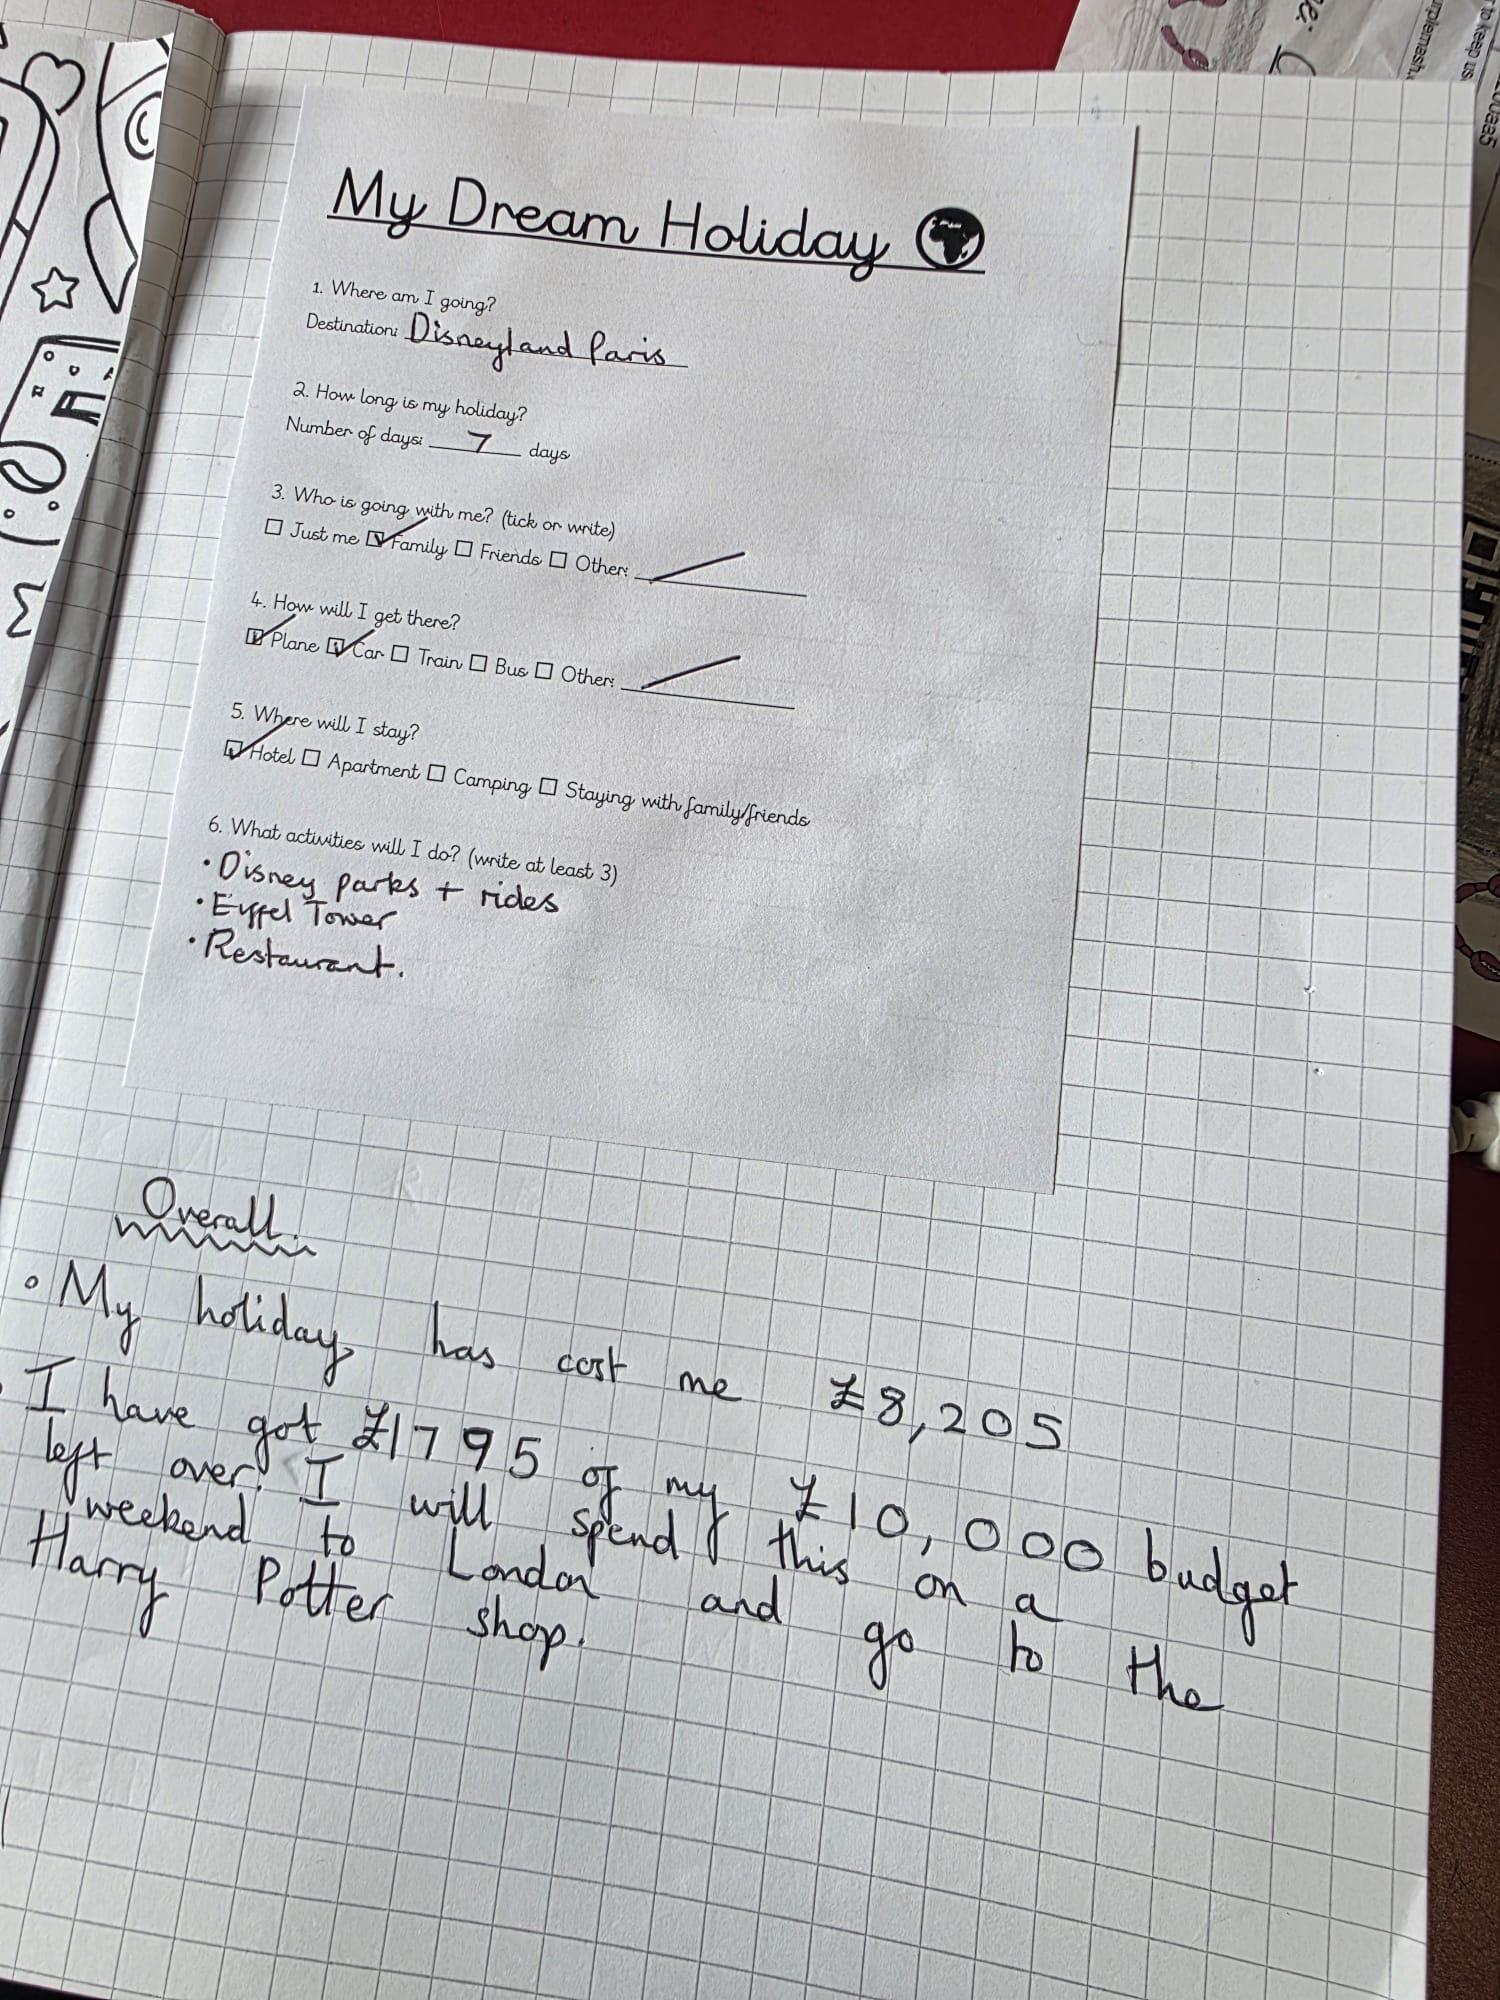 My Dream Holiday
1. Where am I going?
Destination: Disneyland Paris
2. How long is my holiday?
Number of days: 7 days
3. Who is going with me? (tick or write)
☐ Just me ☑ Family ☐ Friends ☐ Other:
4. How will I get there?
☑ Plane ☑ Car ☐ Train ☐ Bus ☐ Other:
5. Where will I stay?
☑ Hotel ☐ Apartment ☐ Camping ☐ Staying with family/friends
6. What activities will I do? (write at least 3)
• Disney parks + rides
• Eiffel Tower
• Restaurant.
Overall.
• My holiday has cost me £8,205
• I have got £1795 of my £10,000 budget
left over. I will spend this on a
weekend to London and go to the
Harry Potter shop.
to keep us